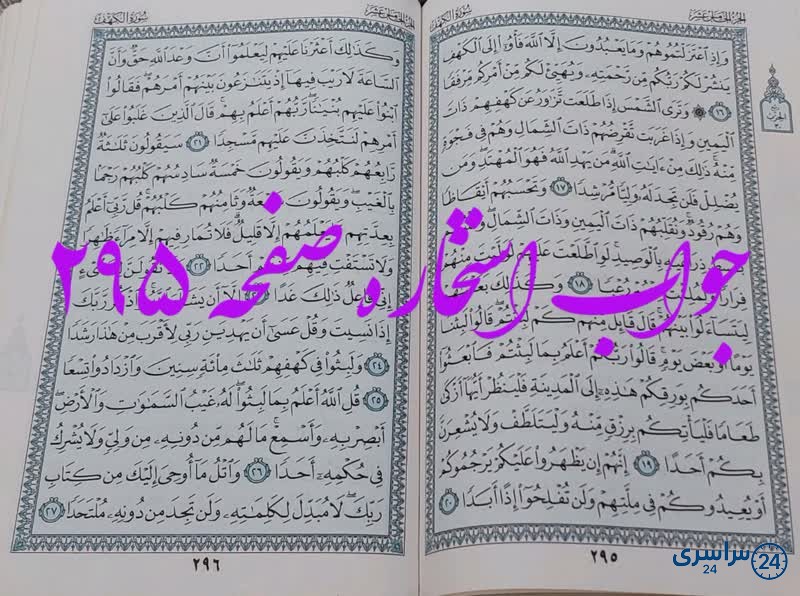 الجزء الخامس عشر
سورة الكهف
وَإِذِ ٱعْتَزَلْتُمُوهُمْ وَمَا يَعْبُدُونَ إِلَّا ٱللَّهَ فَأْوُۥٓا۟ إِلَى ٱلْكَهْفِ
يَنشُرْ لَكُمْ رَبُّكُم مِّن رَّحْمَتِهِۦ وَيُهَيِّئْ لَكُم مِّنْ أَمْرِكُم مِّرْفَقًا
١٦ ۞ وَتَرَى ٱلشَّمْسَ إِذَا طَلَعَت تَّزَٰوَرُ عَن كَهْفِهِمْ ذَاتَ
ٱلْيَمِينِ وَإِذَا غَرَبَت تَّقْرِضُهُمْ ذَاتَ ٱلشِّمَالِ وَهُمْ فِى فَجْوَةٍ
مِّنْهُ ذَٰلِكَ مِنْ ءَايَٰتِ ٱللَّهِ مَن يَهْدِ ٱللَّهُ فَهُوَ ٱلْمُهْتَدِ وَمَن
يُضْلِلْ فَلَن تَجِدَ لَهُۥ وَلِيًّا مُّرْشِدًا ١٧ وَتَحْسَبُهُمْ أَيْقَاظًا
وَهُمْ رُقُودٌ وَنُقَلِّبُهُمْ ذَاتَ ٱلْيَمِينِ وَذَاتَ ٱلشِّمَالِ
بِٱلْوَصِيدِ لَوِ ٱطَّلَعْتَ عَلَيْهِمْ لَوَلَّيْتَ مِنْهُمْ
فِرَارًا وَلَمُلِئْتَ رُعْبًا ١٨ وَكَذَٰلِكَ
لِيَتَسَآءَلُوا۟ بَيْنَهُمْ قَالَ قَآئِلٌ مِّنْهُمْ كَمْ لَبِثْتُمْ قَالُوا۟ لَبِثْنَا
يَوْمًا أَوْ بَعْضَ يَوْمٍ قَالُوا۟ رَبُّكُمْ أَعْلَمُ بِمَا لَبِثْتُمْ فَٱبْعَثُوٓا۟
أَحَدَكُم بِوَرِقِكُمْ هَٰذِهِۦٓ إِلَى ٱلْمَدِينَةِ فَلْيَنظُرْ أَيُّهَآ أَزْكَىٰ
طَعَامًا فَلْيَأْتِكُم بِرِزْقٍ مِّنْهُ وَلْيَتَلَطَّفْ وَلَا يُشْعِرَنَّ
بِكُمْ أَحَدًا ١٩ إِنَّهُمْ إِن يَظْهَرُوا۟ عَلَيْكُمْ يَرْجُمُوكُمْ
أَوْ يُعِيدُوكُمْ فِى مِلَّتِهِمْ وَلَن تُفْلِحُوٓا۟ إِذًا أَبَدًا ٢٠
٢٩٥
الجزء الخامس عشر
سورة الكهف
وَكَذَٰلِكَ أَعْثَرْنَا عَلَيْهِمْ لِيَعْلَمُوٓا۟ أَنَّ وَعْدَ ٱللَّهِ حَقٌّ وَأَنَّ
ٱلسَّاعَةَ لَا رَيْبَ فِيهَآ إِذْ يَتَنَٰزَعُونَ بَيْنَهُمْ أَمْرَهُمْ فَقَالُوا۟
ٱبْنُوا۟ عَلَيْهِم بُنْيَٰنًا رَّبُّهُمْ أَعْلَمُ بِهِمْ قَالَ ٱلَّذِينَ غَلَبُوا۟ عَلَىٰٓ
أَمْرِهِمْ لَنَتَّخِذَنَّ عَلَيْهِم مَّسْجِدًا ٢١ سَيَقُولُونَ ثَلَٰثَةٌ
رَّابِعُهُمْ كَلْبُهُمْ وَيَقُولُونَ خَمْسَةٌ سَادِسُهُمْ كَلْبُهُمْ رَجْمًۢا
بِٱلْغَيْبِ وَيَقُولُونَ سَبْعَةٌ وَثَامِنُهُمْ كَلْبُهُمْ قُل رَّبِّىٓ أَعْلَمُ
بِعِدَّتِهِم مَّا يَعْلَمُهُمْ إِلَّا قَلِيلٌ فَلَا تُمَارِ فِيهِمْ إِلَّا مِرَآءً ظَٰهِرًا
وَلَا تَسْتَفْتِ فِيهِم أَحَدًا ٢٢ تَقُولَنَّ
إِنِّى فَاعِلٌ ذَٰلِكَ غَدًا إِلَّآ أَن يَشَآءَ رَّبَّكَ
إِذَا نَسِيتَ وَقُلْ عَسَىٰٓ أَن يَهْدِيَنِ رَبِّى لِأَقْرَبَ مِنْ هَٰذَا رَشَدًا
٢٤ وَلَبِثُوا۟ فِى كَهْفِهِمْ ثَلَٰثَ مِا۟ئَةٍ سِنِينَ وَٱزْدَادُوا۟ تِسْعًا
٢٥ قُلِ ٱللَّهُ أَعْلَمُ بِمَا لَبِثُوا۟ لَهُۥ غَيْبُ ٱلسَّمَٰوَٰتِ وَٱلْأَرْضِ
أَبْصِرْ بِهِۦ وَأَسْمِعْ مَا لَهُم مِّن دُونِهِۦ مِن وَلِىٍّ وَلَا يُشْرِكُ
فِى حُكْمِهِۦٓ أَحَدًا ٢٦ وَٱتْلُ مَآ أُوحِىَ إِلَيْكَ مِن كِتَابِ
رَبِّكَ لَا مُبَدِّلَ لِكَلِمَٰتِهِۦ وَلَن تَجِدَ مِن دُونِهِۦ مُلْتَحَدًا ٢٧
٢٩٦
جواب استخاره صفحه ۲۹۵
سراسری 24
24